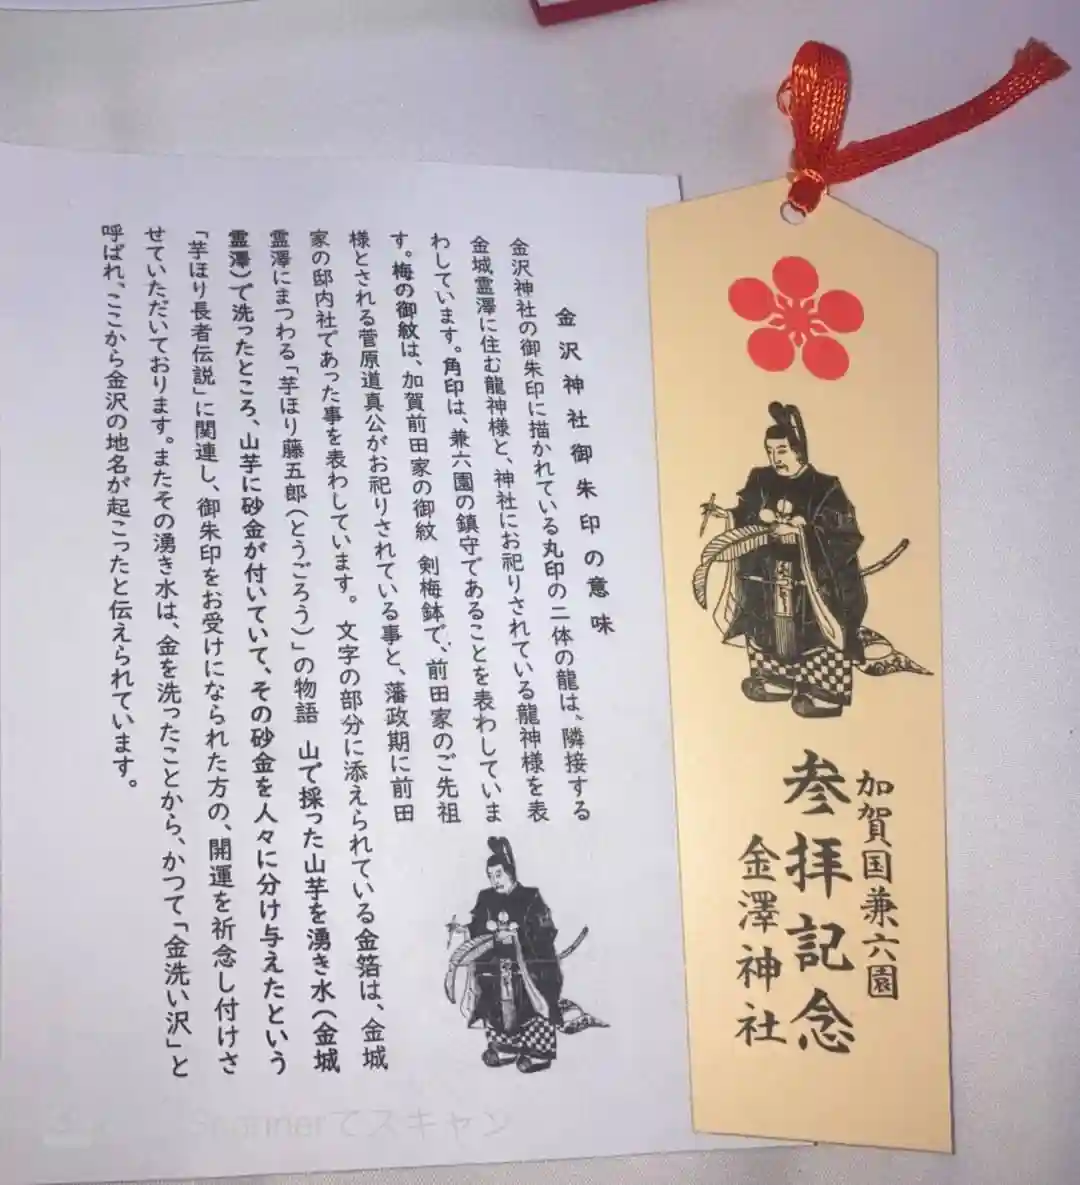 金沢神社御朱印の意味
金沢神社の御朱印に描かれている丸印の二体の龍は、隣接する
金城霊澤に住む龍神様と、神社にお祀りされている龍神様を表
わしています。角印は、兼六園の鎮守であることを表わしていま
す。梅の御紋は、加賀前田家の御紋 剣梅鉢で、前田家のご先祖
様とされる菅原道真公がお祀りされている事と、藩政期に前田
家の邸内社であった事を表わしています。文字の部分に添えられている金箔は、金城
霊澤にまつわる「芋ほり藤五郎(とうごろう)」の物語 山で採った山芋を湧き水(金城
霊澤)で洗ったところ、山芋に砂金が付いていて、その砂金を人々に分け与えたという
「芋ほり長者伝説」に関連し、御朱印をお受けになられた方の、開運を祈念し付けさ
せていただいております。またその湧き水は、金を洗ったことから、かつて「金洗い沢」と
呼ばれ、ここから金沢の地名が起こったと伝えられています。
加賀国兼六園
参拝記念
金澤神社
Scannerでスキャン